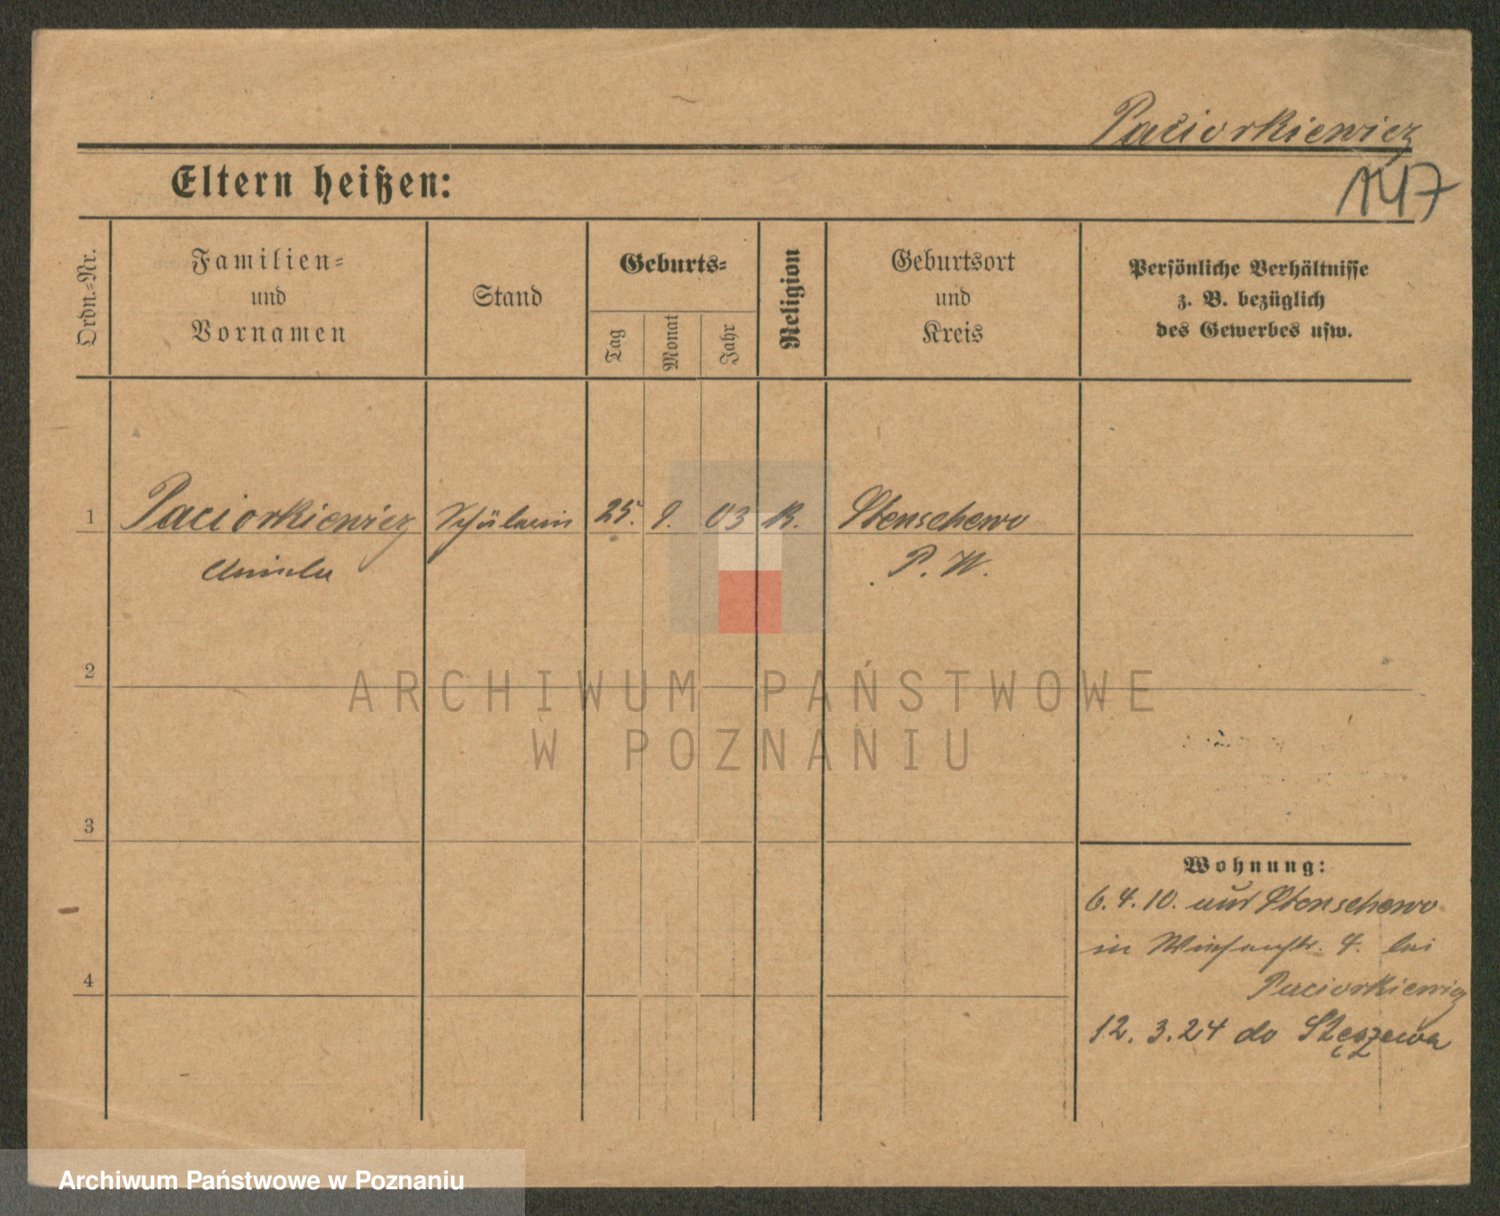 Paciorkiewicz
147
Eltern heißen:
Ordn.-Nr.
Familien-
und
Vornamen
Stand
Geburts-
Tag
Monat
Jahr
Religion
Geburtsort
und
Kreis
Persönliche Verhältnisse
z. B. bezüglich
des Gewerbes usw.
1 Paciorkiewicz Schülerin 25. 9. 03 K. Stenschewo
P. W.
2
ARCHIWUM PAŃSTWOWE
W POZNANIU
3
Wohnung:
6. 4. 10. aus Stenschewo
in Wiesenstr. 4. bei
Paciorkiewicz
4
12. 3. 24 do Stęszewa
Archiwum Państwowe w Poznaniu